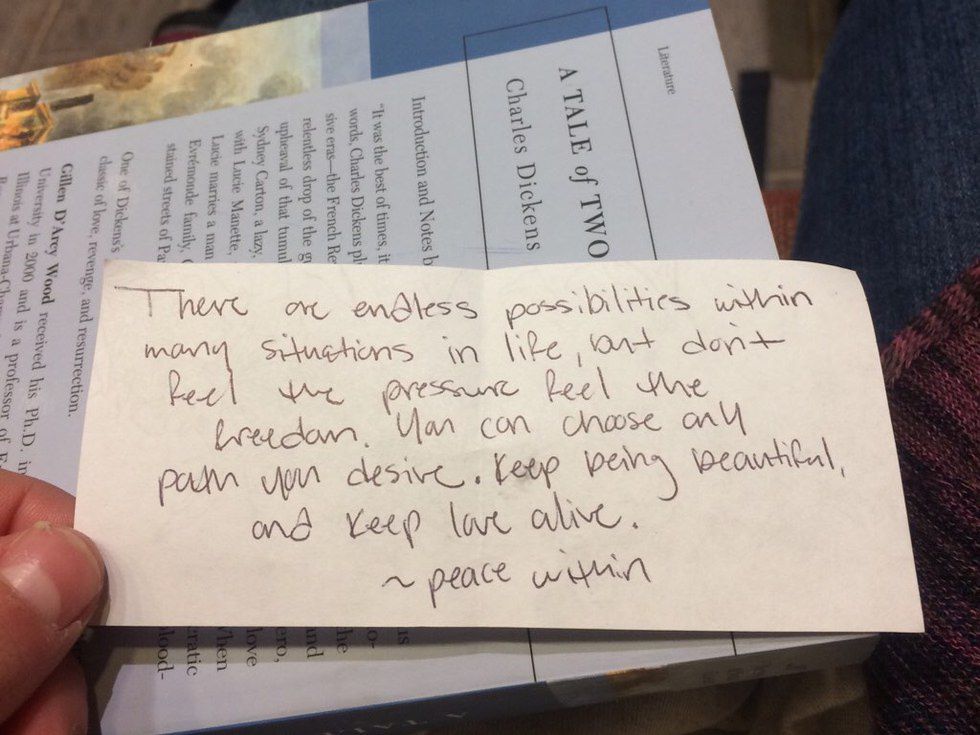 There are endless possibilities within
many situations in life, but don't
feel the pressure feel the
freedom. You can choose any
path you desire. Keep being beautiful,
and keep love alive.
~ peace within
Literature
A TALE of TWO
Charles Dickens
Introduction and Notes b
"It was the best of times, it
words, Charles Dickens pl
sive eras—the French Re
relentless drop of the g
upheaval of that tumul
Sydney Carton, a lazy,
with Lucie Manette,
Lucie marries a man
Evrémonde family,
stained streets of Pa
One of Dickens's
classic of love, revenge, and resurrection.
Gillen D'Arcy Wood received his Ph.D. in
University in 2000 and is a professor of E
Illinois at Urbana-Cham
is
o-
he
and
ero,
love
When
cratic
blood-
A TAL